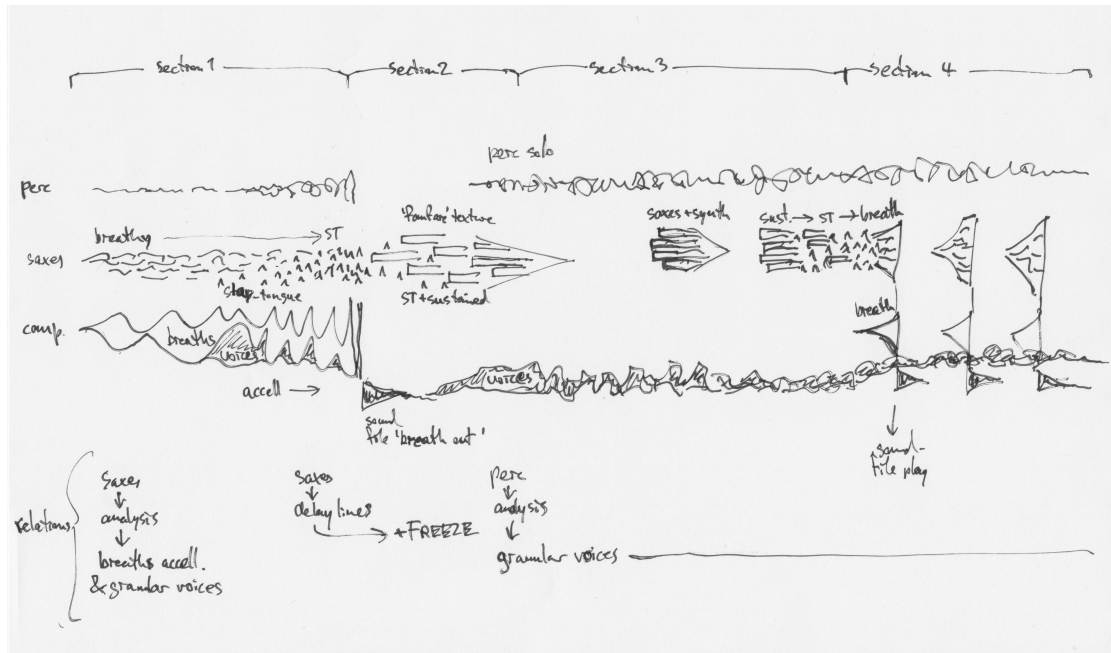 section 1
section 2
section 3
section 4
perc solo
perc
'fanfare' texture
saxes + synth
sust. → ST → breath
breathing → ST
saxes
slap-tongue
ST + sustained
breath
comp.
breaths
voices
voices
accell →
sound
file 'breath out'
sound-
file play
relations
saxes
↓
analysis
↓
breaths accell.
& granular voices
saxes
↓
delay lines
→ + FREEZE
perc
↓
analysis
↓
granular voices